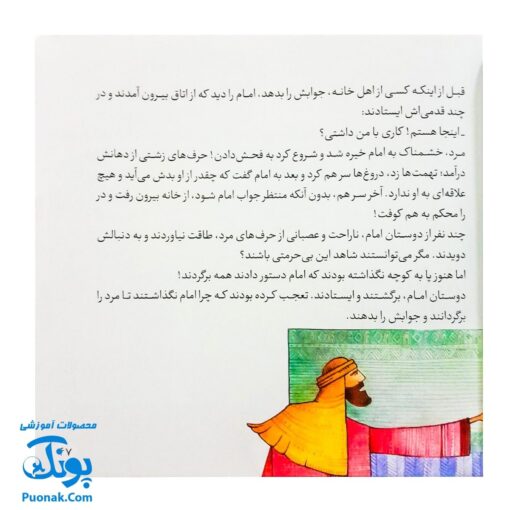 قبل از اینکه کسی از اهل خانه، جوابش را بدهد، امام را دید که از اتاق بیرون آمدند و در
چند قدمی‌اش ایستادند:
ـ اینجا هستم! کاری با من داشتی؟
مرد، خشمناک به امام خیره شد و شروع کرد به فحش‌دادن! حرف‌های زشتی از دهانش
درآمد؛ تهمت‌ها زد، دروغ‌ها سر هم کرد و بعد به امام گفت که چقدر از او بدش می‌آید و هیچ
علاقه‌ای به او ندارد. آخر سر هم، بدون آنکه منتظر جواب امام شود، از خانه بیرون رفت و در
را محکم به هم کوفت!
چند نفر از دوستان امام، ناراحت و عصبانی از حرف‌های مرد، طاقت نیاوردند و به دنبالش
دویدند. مگر می‌توانستند شاهد این بی‌حرمتی باشند؟
اما هنوز پا به کوچه نگذاشته بودند که امام دستور دادند همه برگردند!
دوستان امام، برگشتند و ایستادند. تعجب کرده بودند که چرا امام نگذاشتند تا مرد را
برگردانند و جوابش را بدهند.
محصولات آموزشی
پونک
Puonak.Com